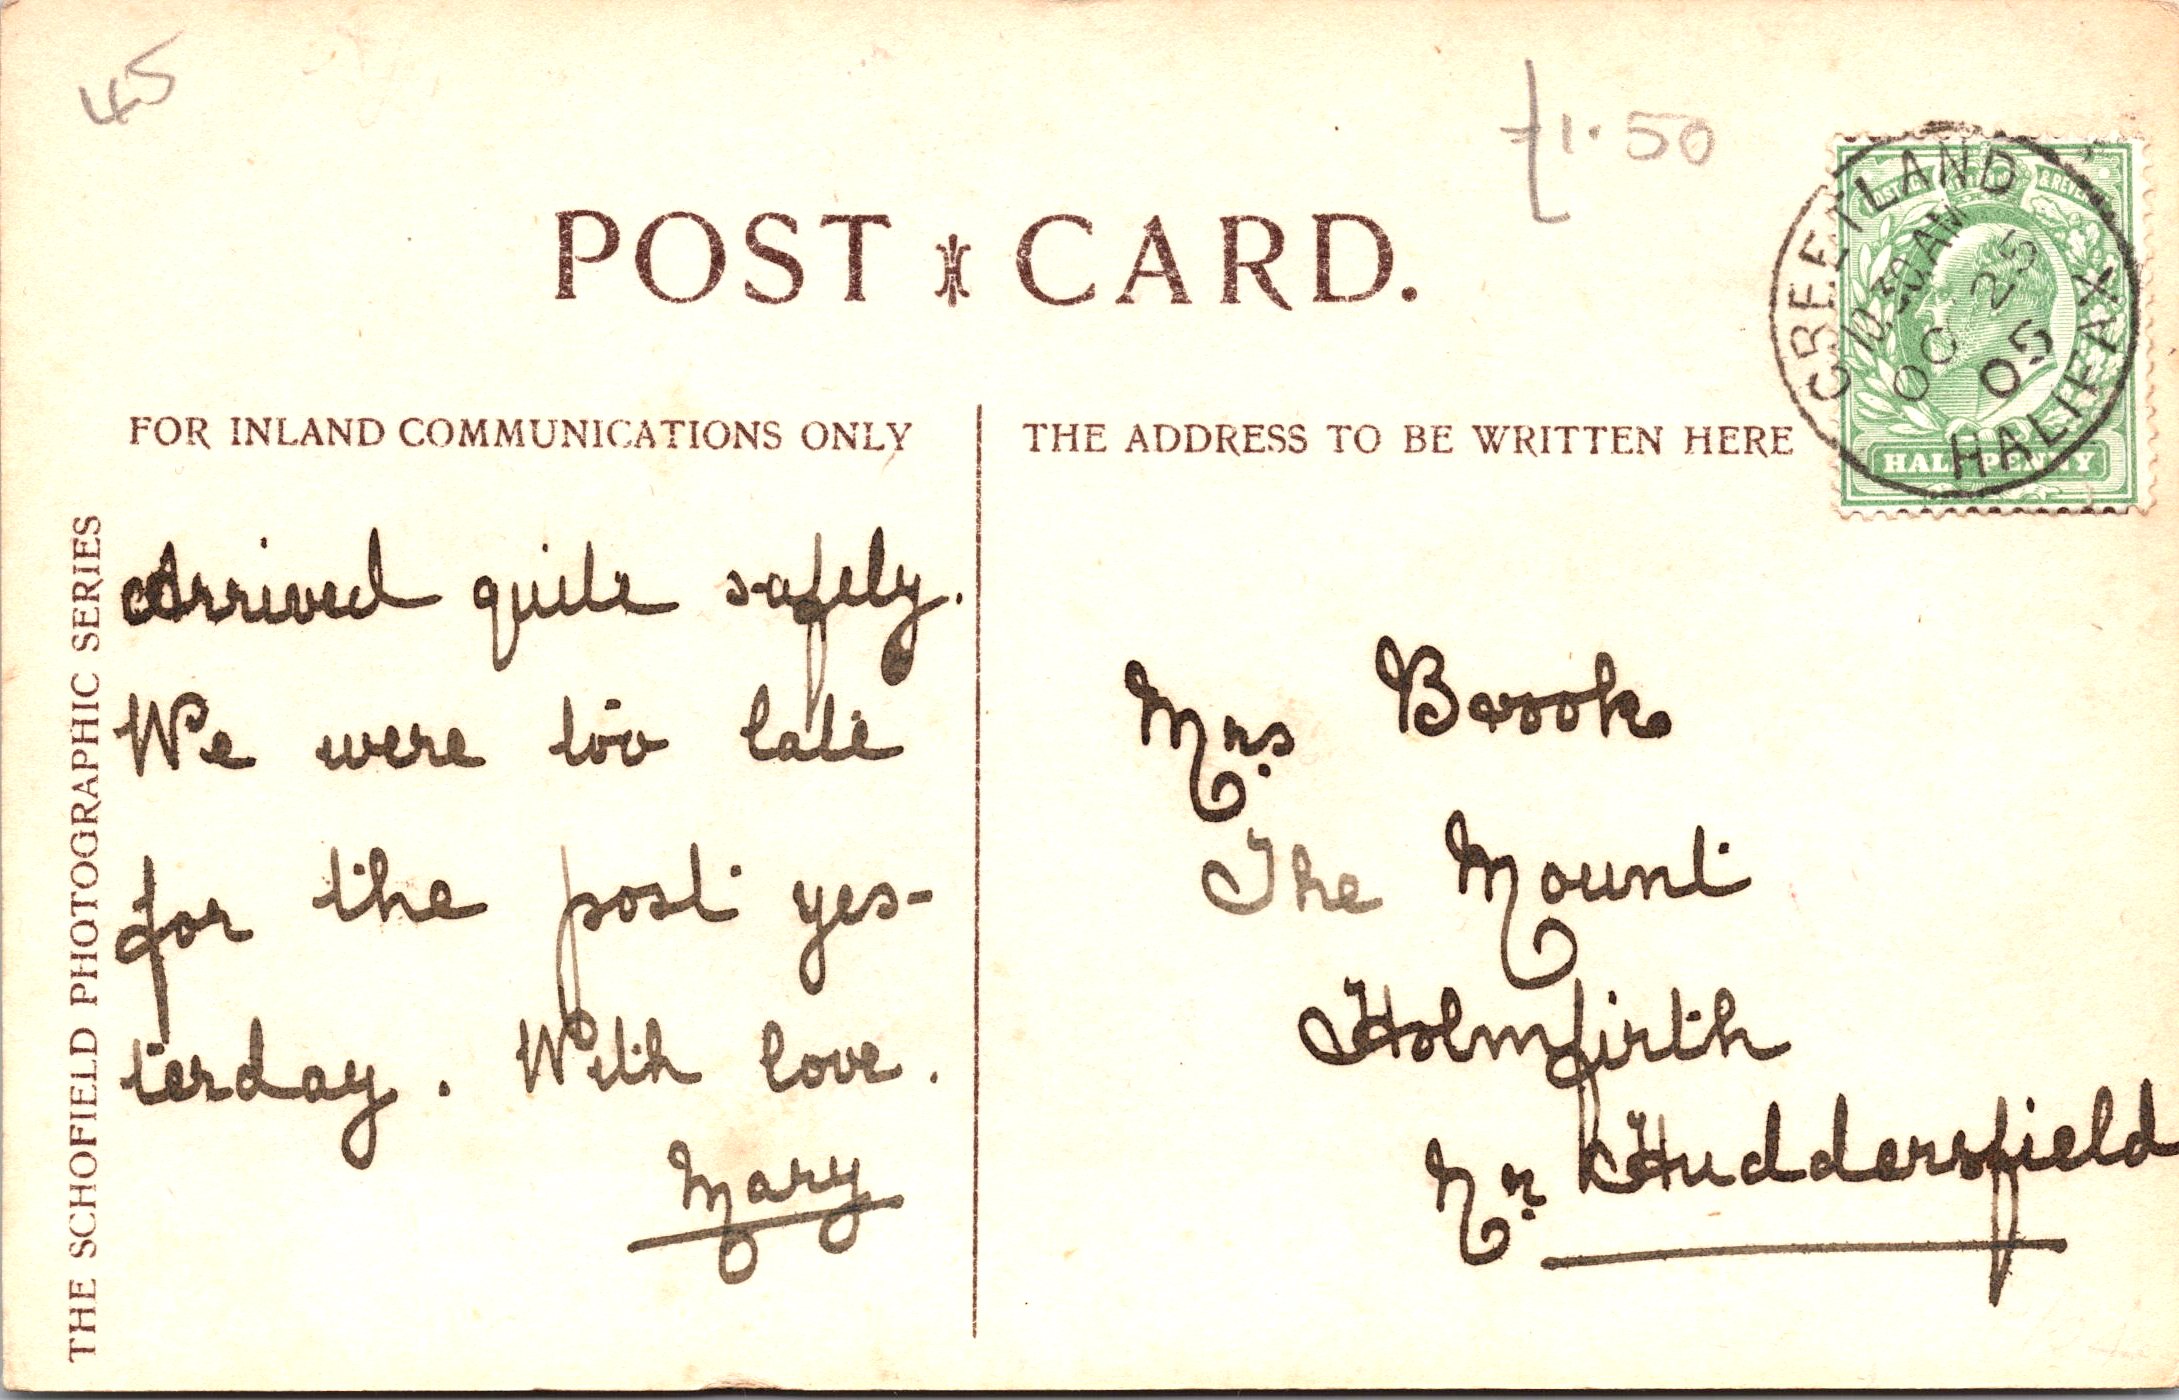 45
£1.50
POST CARD.
GREETLAND
10.30 AM
OC 25
05
HALIFAX
HALFPENNY
FOR INLAND COMMUNICATIONS ONLY
THE ADDRESS TO BE WRITTEN HERE
THE SCHOFIELD PHOTOGRAPHIC SERIES
Arrived quite safely.
We were too late
for the post yes-
terday. With love.
Mary
Mrs Brook
The Mount
Holmfirth
Nr Huddersfield